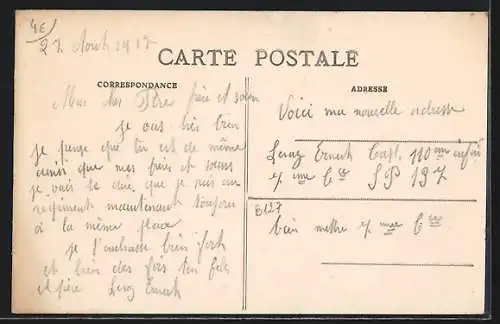 4€
27 Août 1917
CARTE POSTALE
CORRESPONDANCE
ADRESSE
Mon cher Père frère et sœurs
je vais très bien
je pense que tu est de même
ainsi que mes frères et sœurs
je vais te dire que je suis au
régiment maintenant toujours
à la même place
je t'embrasse bien fort
et bien des fois ton fils
et frère Ernest
Voici ma nouvelle adresse
Ernest Capl. 110 ème infie
7 ème Cie SP 197
B127
bien mettre 7 ème Cie